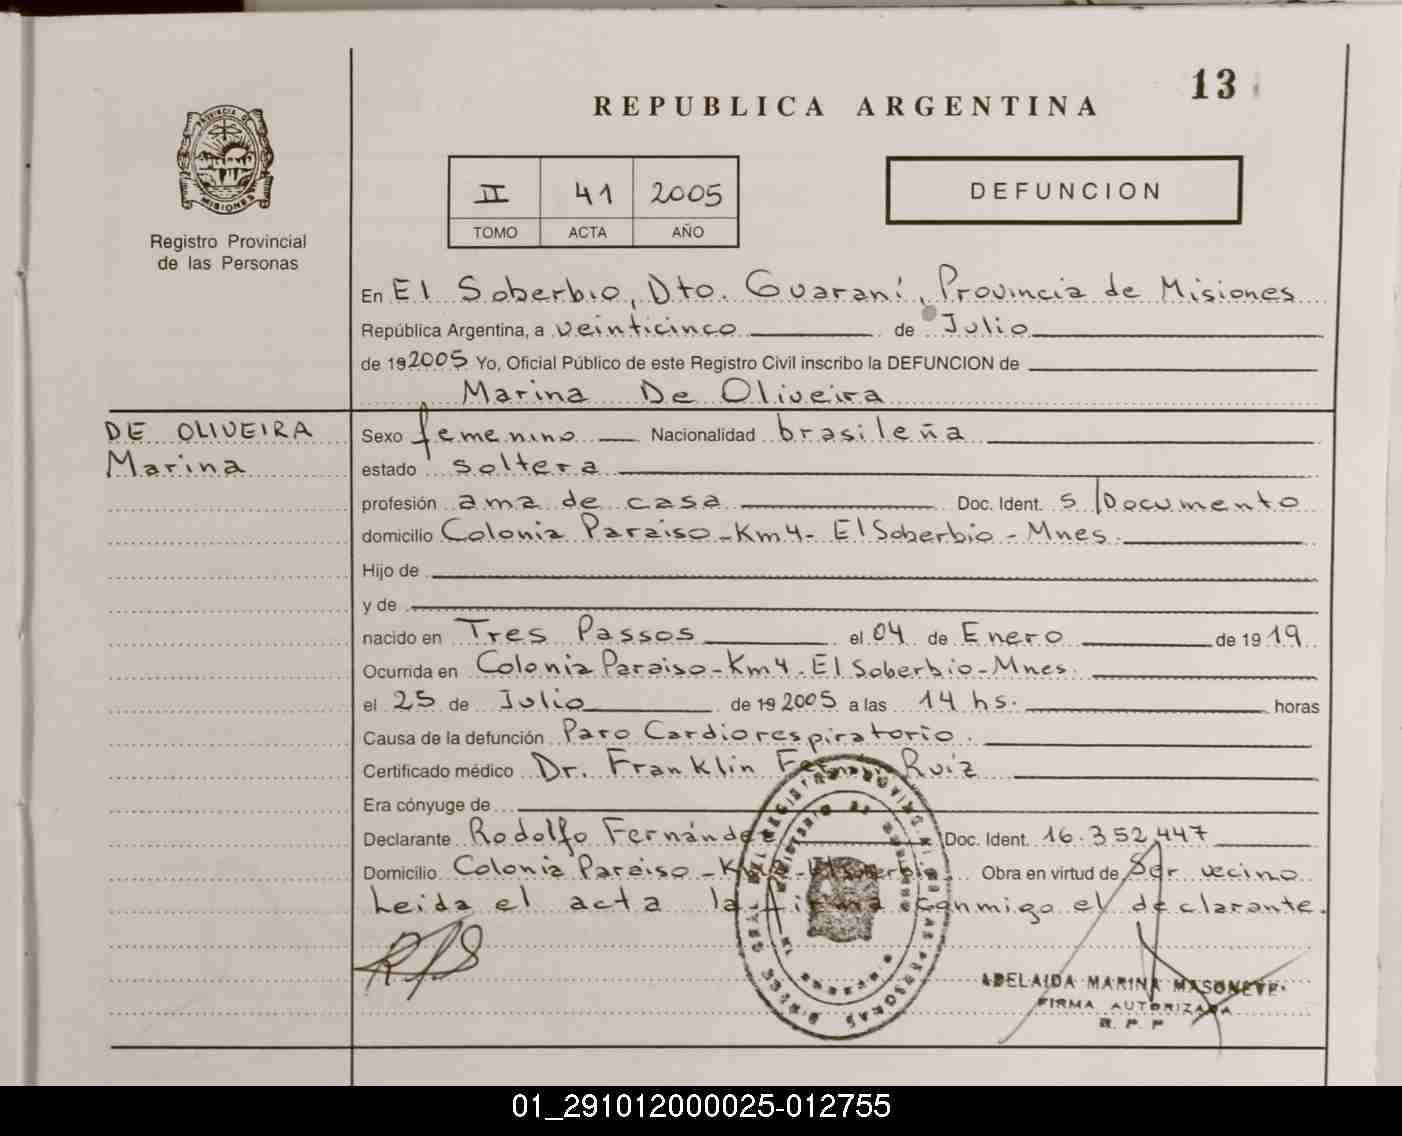 13
REPUBLICA ARGENTINA
PROVINCIA DE
MISIONES
Registro Provincial
de las Personas
II 41 2005
TOMO ACTA AÑO
DEFUNCION
En El Soberbio, Dto. Guaraní, Provincia de Misiones
República Argentina, a veinticinco de Julio
de 192005 Yo, Oficial Público de este Registro Civil inscribo la DEFUNCION de
Marina De Oliveira
DE OLIVEIRA
Marina
Sexo femenino Nacionalidad brasileña
estado soltera
profesión ama de casa Doc. Ident. s/Documento
domicilio Colonia Paraiso - Km 4 - El Soberbio - Mnes.
Hijo de
y de
nacido en Tres Passos el 04 de Enero de 1919
Ocurrida en Colonia Paraiso - Km 4 - El Soberbio - Mnes.
el 25 de Julio de 192005 a las 14 hs. horas
Causa de la defunción Paro Cardiorespiratorio.
Certificado médico Dr. Franklin Ruiz
Era cónyuge de
Declarante Rodolfo Fernández Doc. Ident. 16.352.447
Domicilio Colonia Paraiso - Km 4 - El Soberbio. Obra en virtud de Ser vecino
Leida el acta la firma conmigo el declarante.
ADELAIDA MARINA
FIRMA AUTORIZADA
R. P. P
01_291012000025-012755